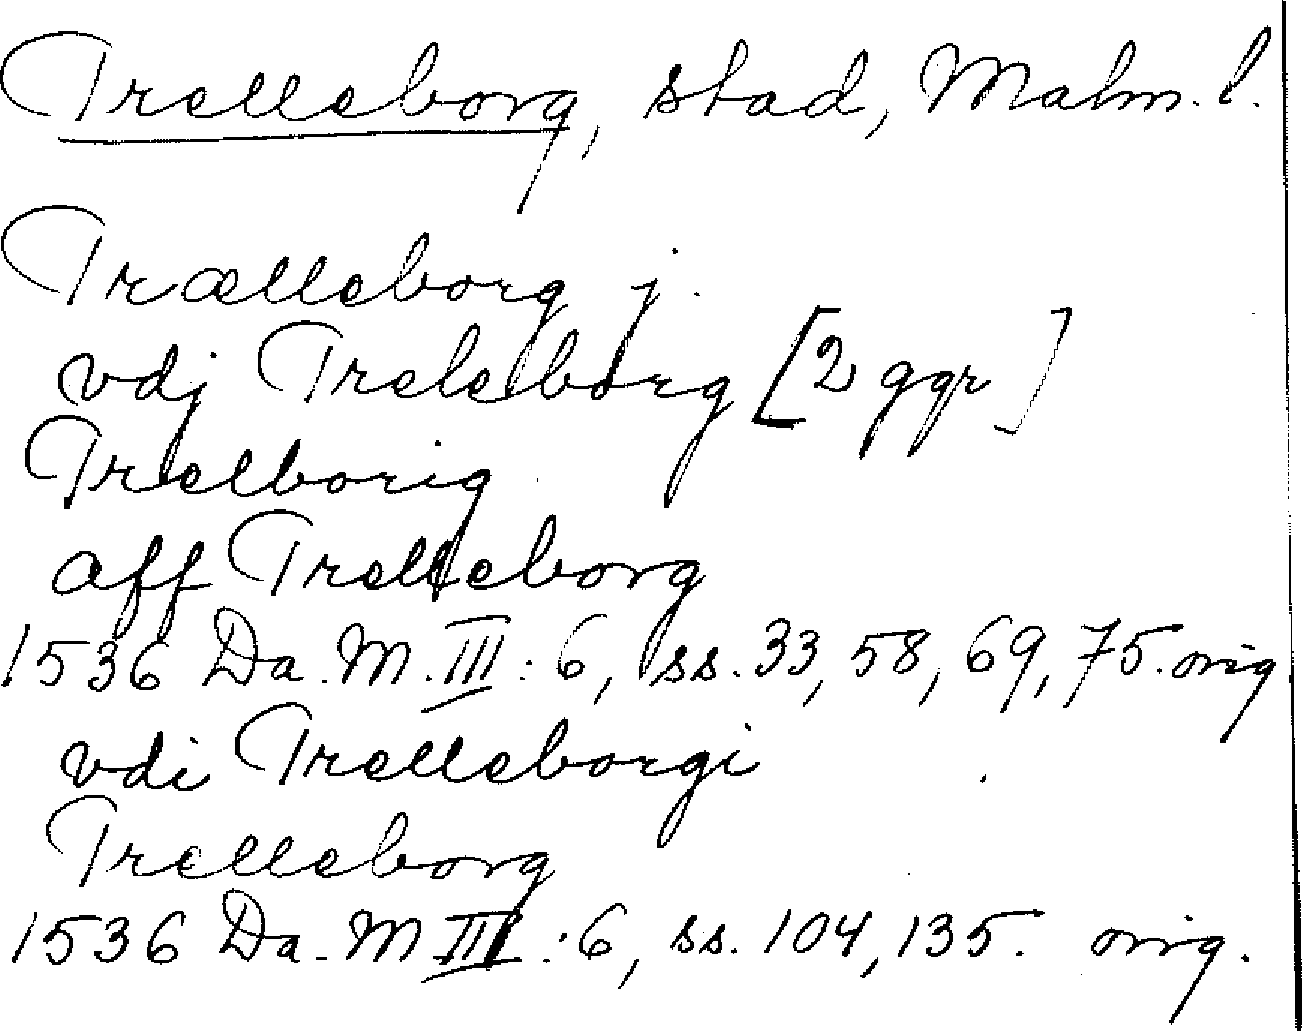 Trelleborg, stad, Malm. l.
Trælleborg j.
vdj Treleborg [2 ggr]
Trelborig
aff Trelleborg
1536 Da. M. III: 6, ss. 33, 58, 69, 75. orig
vdi Trelleborgi
Trelleborg
1536 Da. M III: 6, ss. 104, 135. orig.